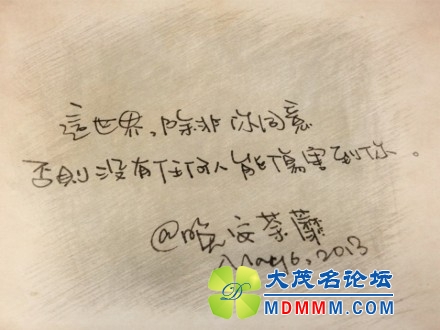 這世界,除非你同意
否則沒有任何人能傷害到你。
@晚安荼蘼
May 6, 2013
大茂名论坛
MDMMM.COM